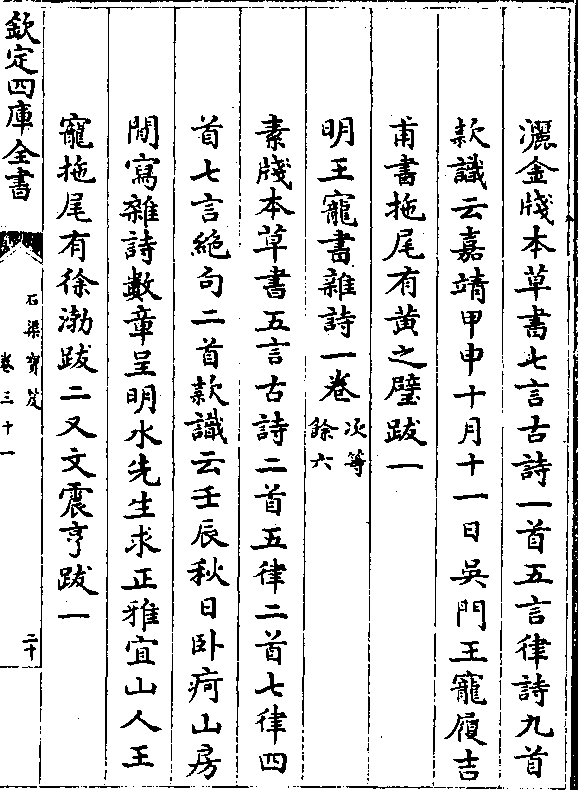 灑金牋本草書七言古詩一首五言律詩九首
款識云嘉靖甲申十月十一日吳門王寵履吉
甫書拖尾有黃之璧跋一
明王寵書雜詩一卷次等
餘六
素牋本草書五言古詩二首五律二首七律四
首七言絶句二首款識云壬辰秋日卧疴山房
間寫雜詩數章呈明水先生求正雅宜山人王
寵拖尾有徐渤跋二又文震亨跋一
欽定四庫全書
石渠寶笈
卷三十一
二十